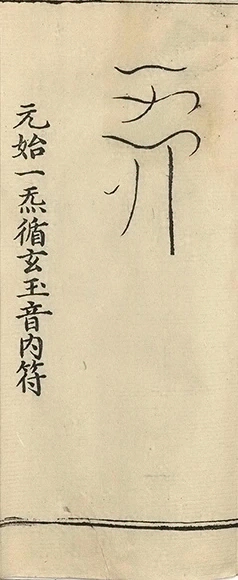 元始一炁循玄玉音內符